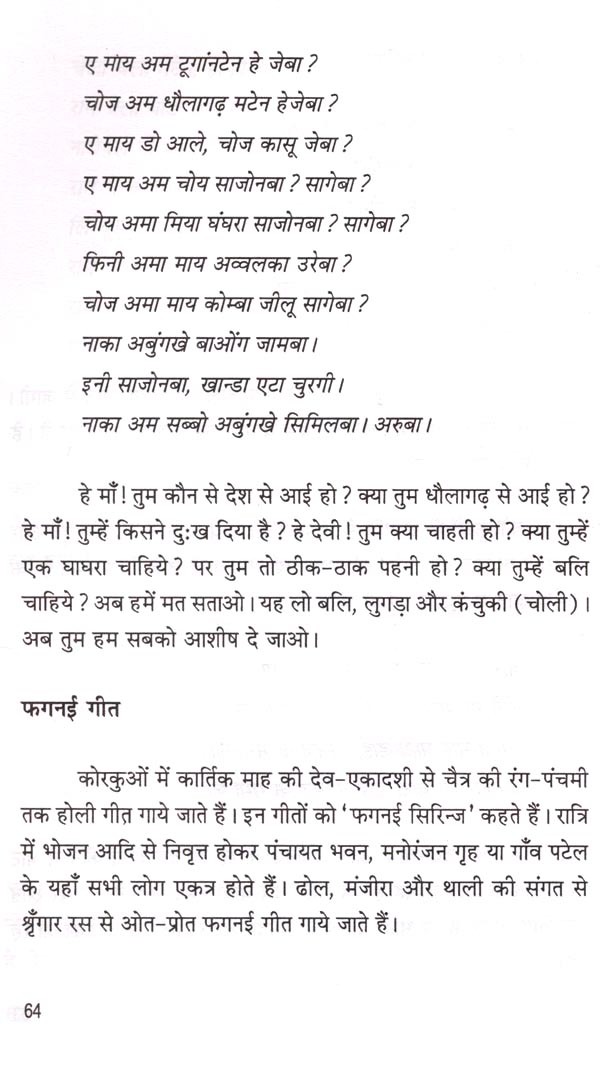 ए माय अम टूगांनटेन हे जेबा?
चोज अम धौलागढ़ मटेन हेजेबा?
ए माय डो आले, चोज कासू जेबा?
ए माय अम चोय साजोनबा? सागेबा?
चोय अमा मिया घंघरा साजोनबा? सागेबा?
फिनी अमा माय अव्वलका उरेबा?
चोज अमा माय कोम्बा जीलू सागेबा?
नाका अबुंगखे बाओंग जामबा।
इनी साजोनबा, खान्डा एटा चुरगी।
नाका अम सब्बो अबुंगखे सिमिलबा। अरुबा।
हे माँ! तुम कौन से देश से आई हो? क्या तुम धौलागढ़ से आई हो?
हे माँ! तुम्हें किसने दुःख दिया है? हे देवी! तुम क्या चाहती हो? क्या तुम्हें
एक घाघरा चाहिये? पर तुम तो ठीक-ठाक पहनी हो? क्या तुम्हें बलि
चाहिये? अब हमें मत सताओ। यह लो बलि, लुगड़ा और कंचुकी (चोली)।
अब तुम हम सबको आशीष दे जाओ।
फगनई गीत
कोरकुओं में कार्तिक माह की देव-एकादशी से चैत्र की रंग-पंचमी
तक होली गीत गाये जाते हैं। इन गीतों को 'फगनई सिरिन्ज' कहते हैं। रात्रि
में भोजन आदि से निवृत्त होकर पंचायत भवन, मनोरंजन गृह या गाँव पटेल
के यहाँ सभी लोग एकत्र होते हैं। ढोल, मंजीरा और थाली की संगत से
श्रृँगार रस से ओत-प्रोत फगनई गीत गाये जाते हैं।
64